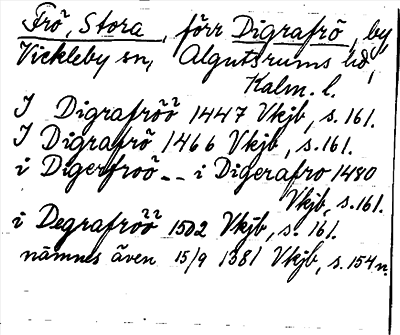 Frö, Stora, förr Digrafrö, by,
Vickleby sn, Algutsrums hd,
Kalm. l.
I Digrafröö 1447 Vkjb, s. 161.
I Digrafrö 1466 Vkjb, s. 161.
i Digerfroö -- i Digerafro 1480
Vkjb, s. 161.
i Degrafröö 1502 Vkjb, s. 161.
nämnes även 15/9 1381 Vkjb, s. 154 n.